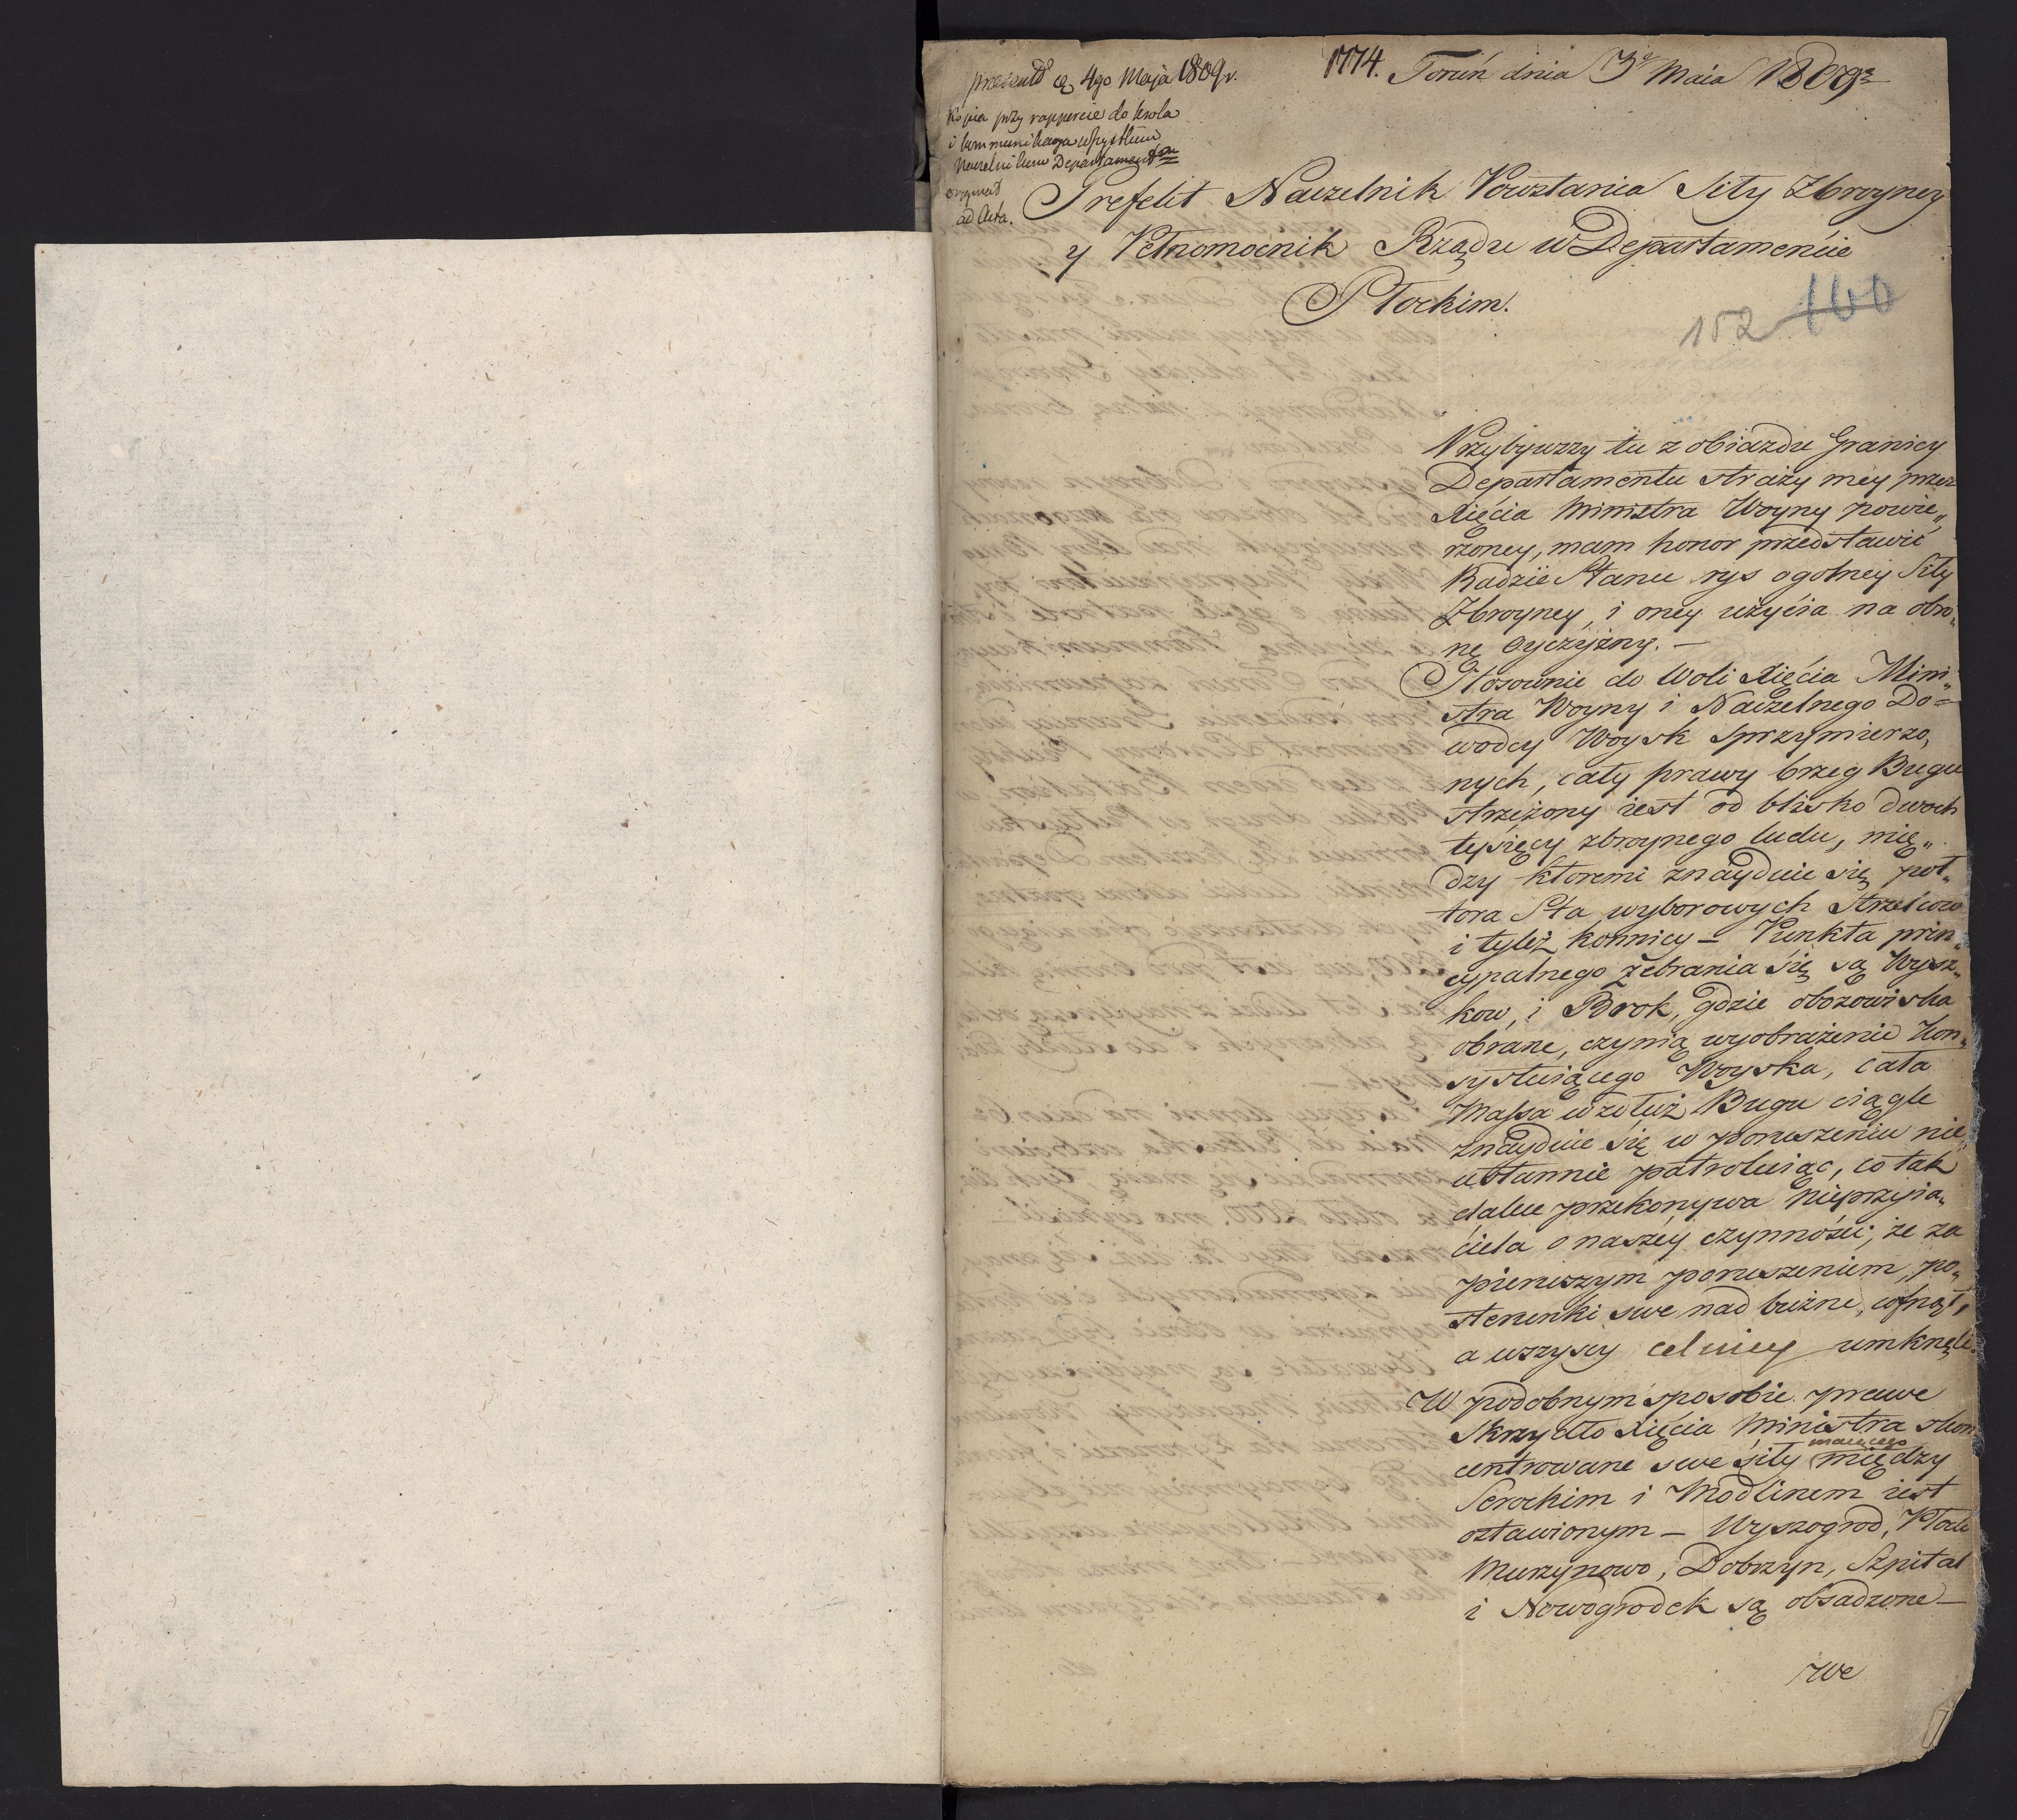 1774. Toruń dnia 3º Maia 1809º
presentt 4go Maja 1809 r.
Kopia przy rapporcie do krola
i kommunikacya wszystkim
Naczelnikom Departamentow
orygniał
ad Acta.
Prefekt Naczelnik Powstania Siły Zbroyney
y Pełnomocnik Rządu w Departamencie
Płockim.
152 160
Przybywszy tu z obiazdu Granicy
Departamentu straży mey przez
Xięcia Ministra Woyny powie„
rzoney, mam honor przedstawić
Radzie Stanu rys ogolney Siły
Zbroyney, i oney użyćia na obro„
nę Oyczyzny. —
Stosownie do Woli Xięćia Mini„
stra Woyny i Naczelnego Do=
wodcy Woysk Sprzymierzo„
nych, cały prawy brzeg Bugu
strzeżony iest od blisko dwoch
tysięcy zbroynego ludu, mię„
dzy ktoremi znayduie się pół„
tora Sta wyborowych Strzelcow
i tyleż konnicy — Punkta prin„
cypalnego zebrania się są Wysz„
kow, i Brok, gdzie obozowiska
obrane, czynią wyobrażenie kon„
systuiącego Woyska, cała
Massa wzdłuż Bugu ciągle
znayduie się w poruszeniu nie„
ustannie patroluiąc, co tak
dalece przekonywa nieprzyia„
ćiela o naszey czynnośći, że za
pierwszym poruszeniem, po„
sterunki swe nad bużne, cofnął,
a wszyscy celnicy umknęli.
W podobnym sposobie prawe
Skrzydło Xięćia Ministra skon„
centrowane swe siły maiącego między
Serockim i Modlinem iest
ostawionym — Wyszogrod, Płock
Murzynowo, Dobrzyn, Szpital
i Nowogrodek są obsadzone —
We